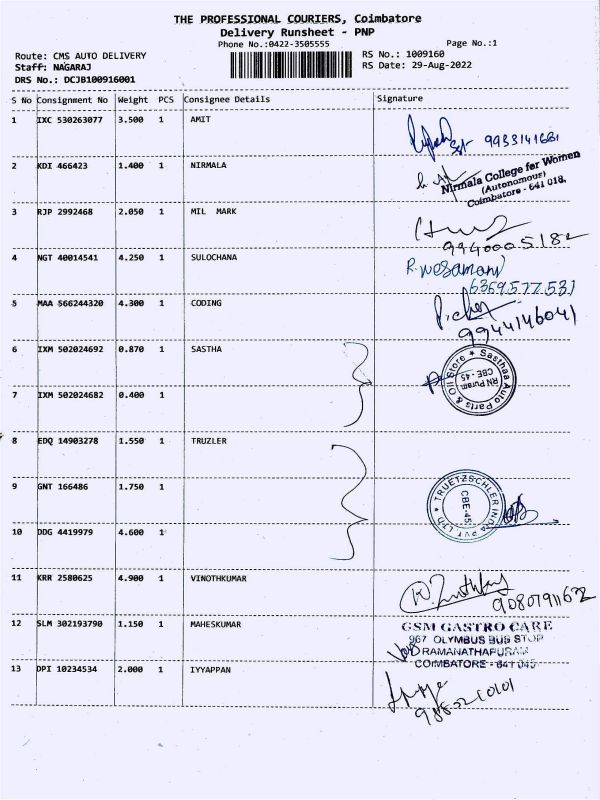 THE PROFESSIONAL COURIERS, Coimbatore
Delivery Runsheet - PNP
Phone No.:0422-3505555
Page No.:1
Route: CMS AUTO DELIVERY
RS No.: 1009160
Staff: NAGARAJ
RS Date: 29-Aug-2022
DRS No.: DCJB100916001
S No Consignment No Weight PCS Consignee Details Signature
1 IXC 530263077 3.500 1 AMIT
9933141681
2 KDI 466423 1.400 1 NIRMALA
Nirmala College for Women
(Autonomour)
Coimbatore - 641 018.
3 RJP 2992468 2.050 1 MIL MARK
9940005182
4 NGT 40014541 4.250 1 SULOCHANA
6369577531
5 MAA 566244320 4.300 1 CODING
9944146041
6 IXM 502024692 0.870 1 SASTHA
Sasthaa Auto Parts & Oil Store
RN Puram
CBE - 45
7 IXM 502024682 0.400 1
8 EDQ 14903278 1.550 1 TRUZLER
9 GNT 166486 1.750 1
TRUETZSCHLER INDIA PVT LTD
CBE-45
10 DDG 4419979 4.600 1
11 KRR 2580625 4.900 1 VINOTHKUMAR
12 SLM 302193790 1.150 1 MAHESKUMAR
GSM GASTRO CARE
967 OLYMBUS BUS STOP
RAMANATHAPURAM
COIMBATORE - 641 045
13 DPI 10234534 2.000 1 IYYAPPAN